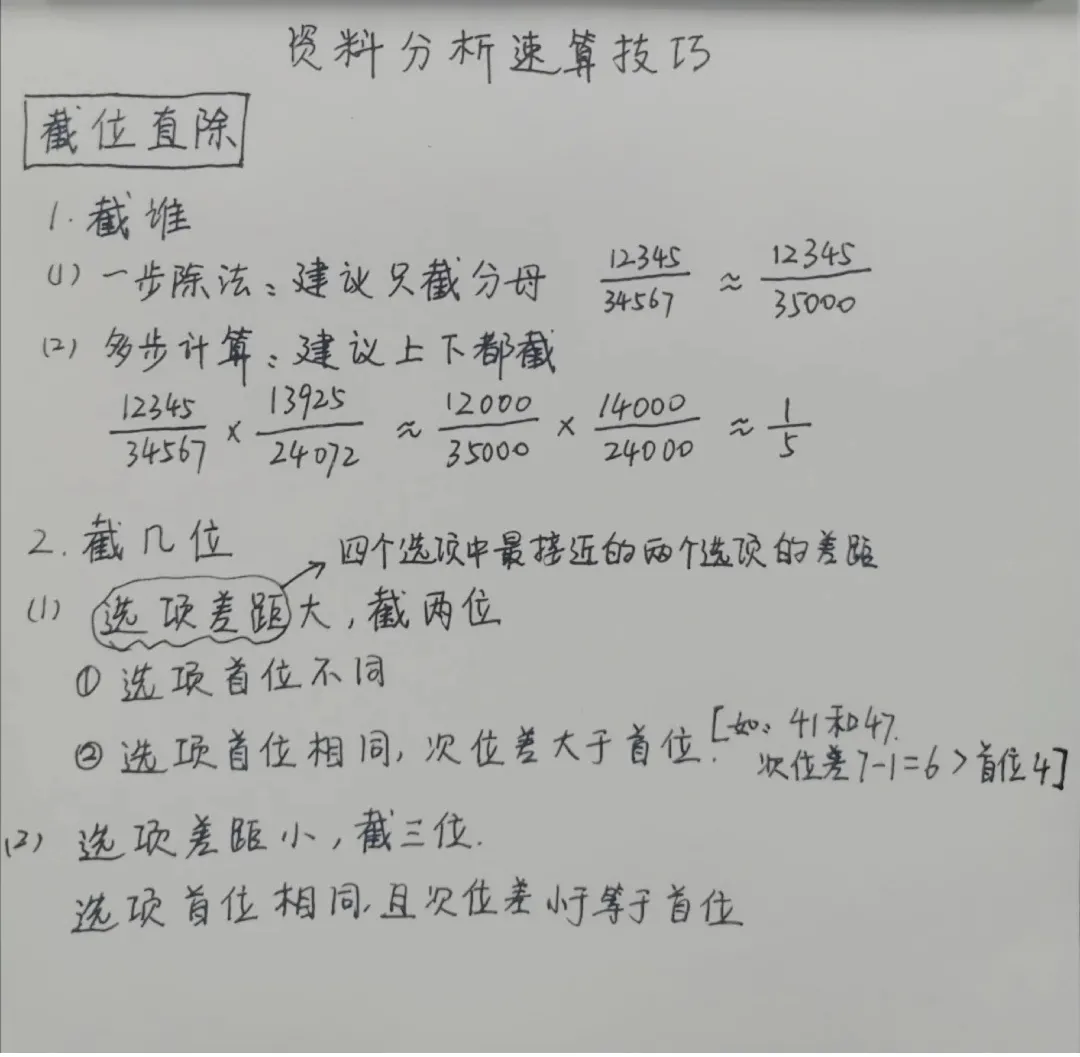 资料分析速算技巧
截位直除
1. 截谁
(1) 一步除法：建议只截分母 12345/34567 ≈ 12345/35000
(2) 多步计算：建议上下都截
12345/34567 × 13925/24072 ≈ 12000/35000 × 14000/24000 ≈ 1/5
2. 截几位
四个选项中最接近的两个选项的差距
(1) 选项差距大，截两位
① 选项首位不同
② 选项首位相同，次位差大于首位. [如：41和47.
次位差7-1=6>首位4]
(2) 选项差距小，截三位.
选项首位相同，且次位差小于等于首位